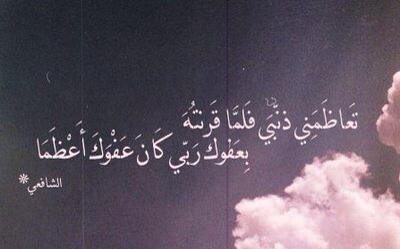 تَعَاظَمَنِي ذَنْبِي فَلَمَّا قَرَنْتُهُ
بِعَفْوِكَ رَبِّي كَانَ عَفْوُكَ أَعْظَمَا
الشافعي*